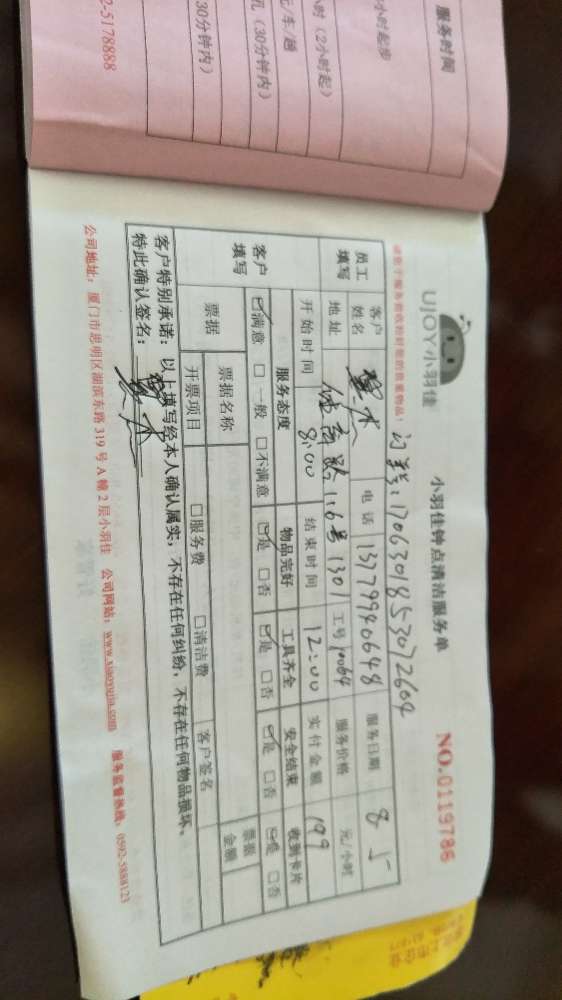 服务时间
小时起步
时（2小时起）
元/车/趟
孔（30分钟内）
30分钟内）
2-5178888
UJOY小羽佳
小羽佳钟点清洁服务单
NO.0119786
订单：170630185307260
员工填写
客户姓名
电话 13779940648
服务日期 8 5
地址
116号1301
工号 10064
服务价格 元/小时
开始时间 8:00
结束时间 12:00
实付金额 199
客户填写
服务态度
物品完好
工具齐全
安全结束
收到卡片
☑满意 □一般 □不满意
☑是 □否
☑是 □否
☑是 □否
☑是 □否
票据
票据名称
票据金额
开票项目
□服务费 □清洁费
客户签名
客户特别承诺：以上填写经本人确认属实，不存在任何纠纷，不存在任何物品损坏。
特此确认签名：
公司地址：厦门市思明区湖滨东路319号A幢2层小羽佳 公司网站：www.xiaoyujia.com 服务监督热线：0592-5888123